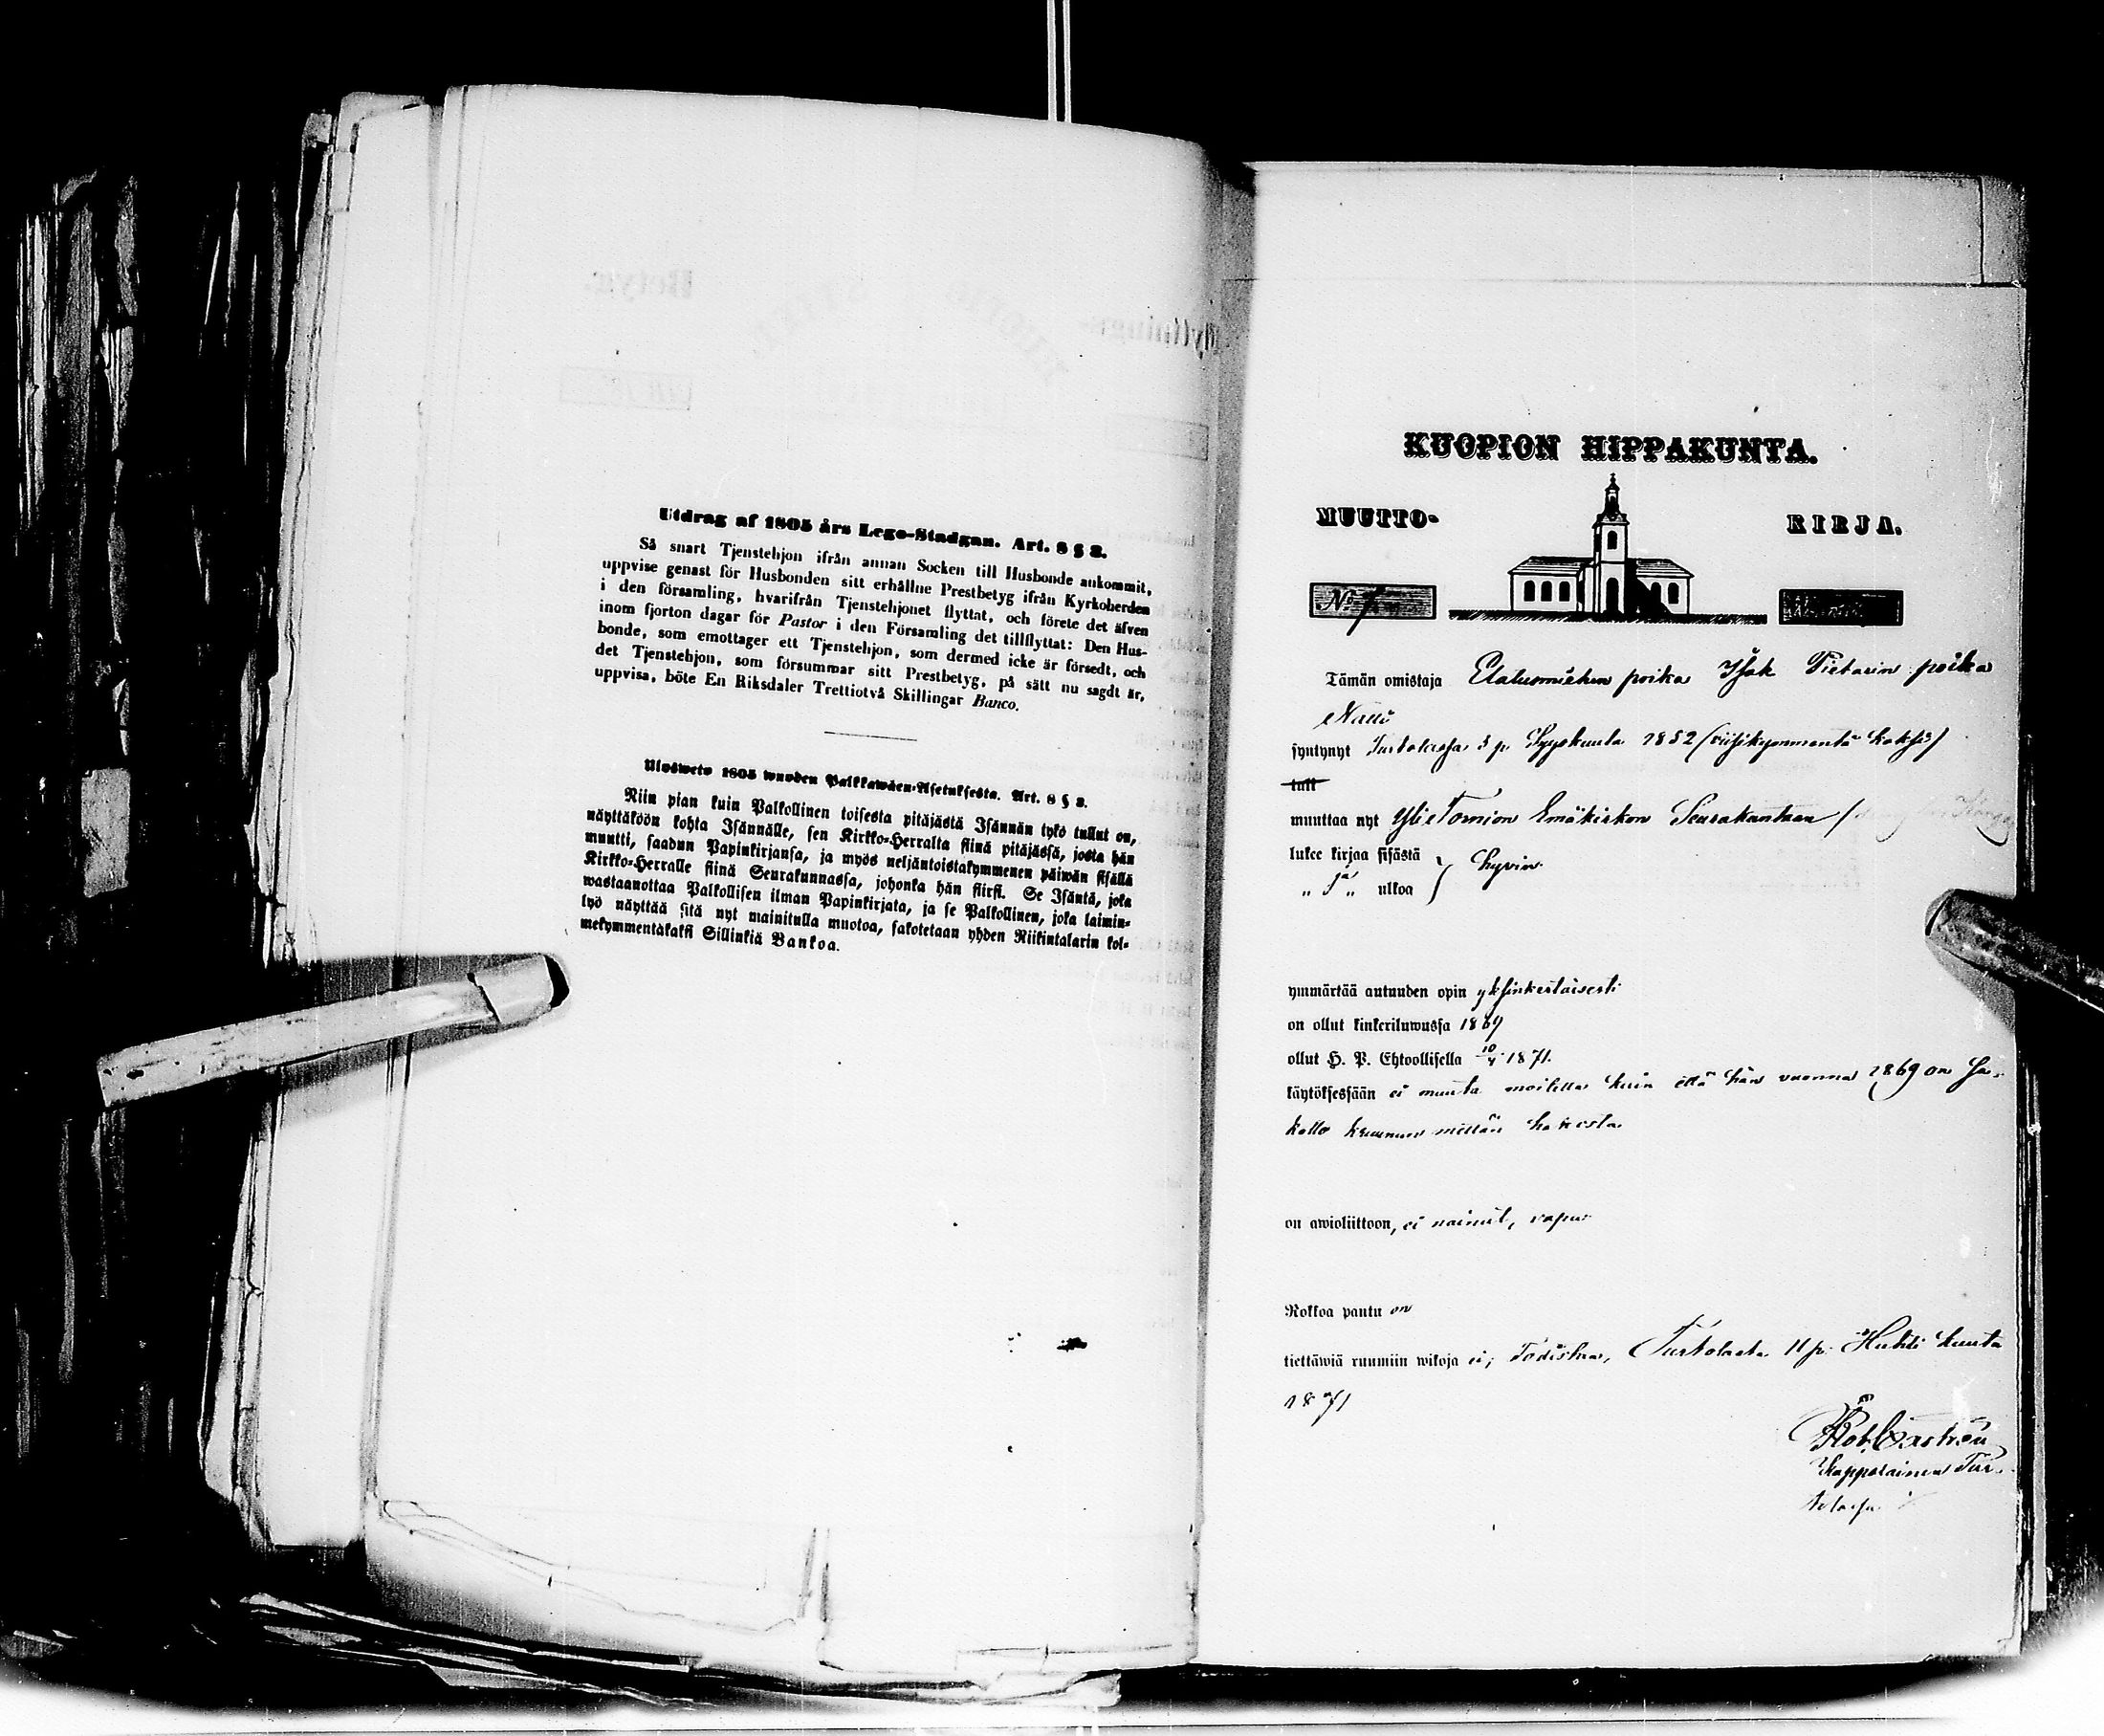 Utdrag af 1805 års Lego-Stadgan. Art. 8 § 3.
Så snart Tjenstehjon ifrån annan Socken till Husbonde ankommit,
uppvise genast för Husbonden sitt erhållne Prestbetyg ifrån Kyrkoherden
i den församling, hvarifrån Tjenstehjonet flyttat, och förete det äfven
inom fjorton dagar för Pastor i den Församling det tillflyttat: Den Hus-
bonde, som emottager ett Tjenstehjon, som dermed icke är försedt, och
det Tjenstehjon, som försummar sitt Prestbetyg, på sätt nu sagdt är,
uppvisa, böte En Riksdaler Trettiotvå Skillingar Banco.
Ulosweto 1805 wuoden Palkkawäen-Asetuksesta. Art. 8 § 3.
Niin pian kuin Palkollinen toisesta pitäjästä Isännän tykö tullut on,
näyttäköön kohta Isännälle, sen Kirkko-Herralta siinä pitäjässä, josta hän
muutti, saadun Papinkirjansa, ja myös neljäntoistakymmenen päiwän sisällä
Kirkko-Herralle siinä Seurakunnassa, johonka hän siirsi. Se Isäntä, joka
wastaanottaa Palkollisen ilman Papinkirjata, ja se Palkollinen, joka laimin-
lyö näyttää sitä nyt mainitulla muotoa, sakotetaan yhden Riikintalarin kol-
mekymmentäkaksi Sillinkiä Bankoa.
KUOPION HIPPAKUNTA.
MUUTTO-KIRJA.
No 7
Tämän omistaja Elatusmiehen poika Isak Pietarin poika
syntynyt Turtolassa 3 p. Syyskuuta 1852 (viisikymmentä kaksi)
tull
muuttaa nyt YliTornion Emäkirkon Seurakuntaan
lukee kirjaa sisästä } hyvin
„ ja „ ulkoa
ymmärtää autuuden opin yksinkertaisesti
on ollut kinkeriluwussa 1869
ollut H. P. Ehtoollisella 10/4 1871.
käytöksessään ei muuta moitetta kuin että hän vuonna 1869 on sa-
kotto kruunun metsän
on awioliittoon, ei nainut, vapaa
Rokkoa pantu on
tiettäwiä ruumiin wikoja ei; Todistaa, Turtolasta 11 p. Huhti kuuta
1871
Kappalainen Tur-
tolassa